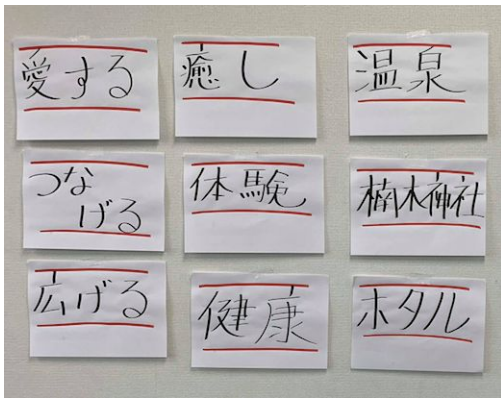 愛する
癒し
温泉
つな
げる
体験
楠木神社
広げる
健康
ホタル